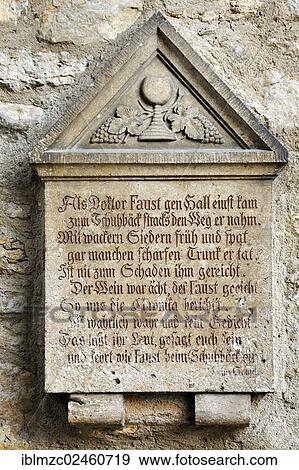 Als Doktor Faust gen Hall einst kam
zum Tschubbäck stracks den Weg er nahm.
Mit wackern Siedern früh und spat
gar manchen scharfen Trunk er tat.
Ist nit zum Schaden ihm gereicht.
Der Wein war ächt, der Faust geeicht
So uns die Chronika berichtt
Ist wahrlich wahr und kein Gedicht.
Das laßt ihr Leut, gesagt euch sein
und kehrt wie Faust beim Schuhbäck ein
fotosearch
iblmzc02460719 www.fotosearch.com